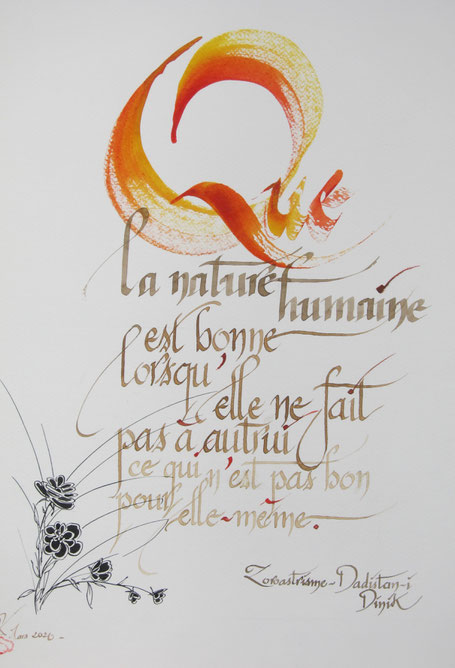 Que
la nature
humaine
est bonne
lorsqu'
elle ne fait
pas à autrui
ce qui n'est pas bon
pour elle-même.
Zoroastrisme-Dadistan-i
Dinik
2020 -